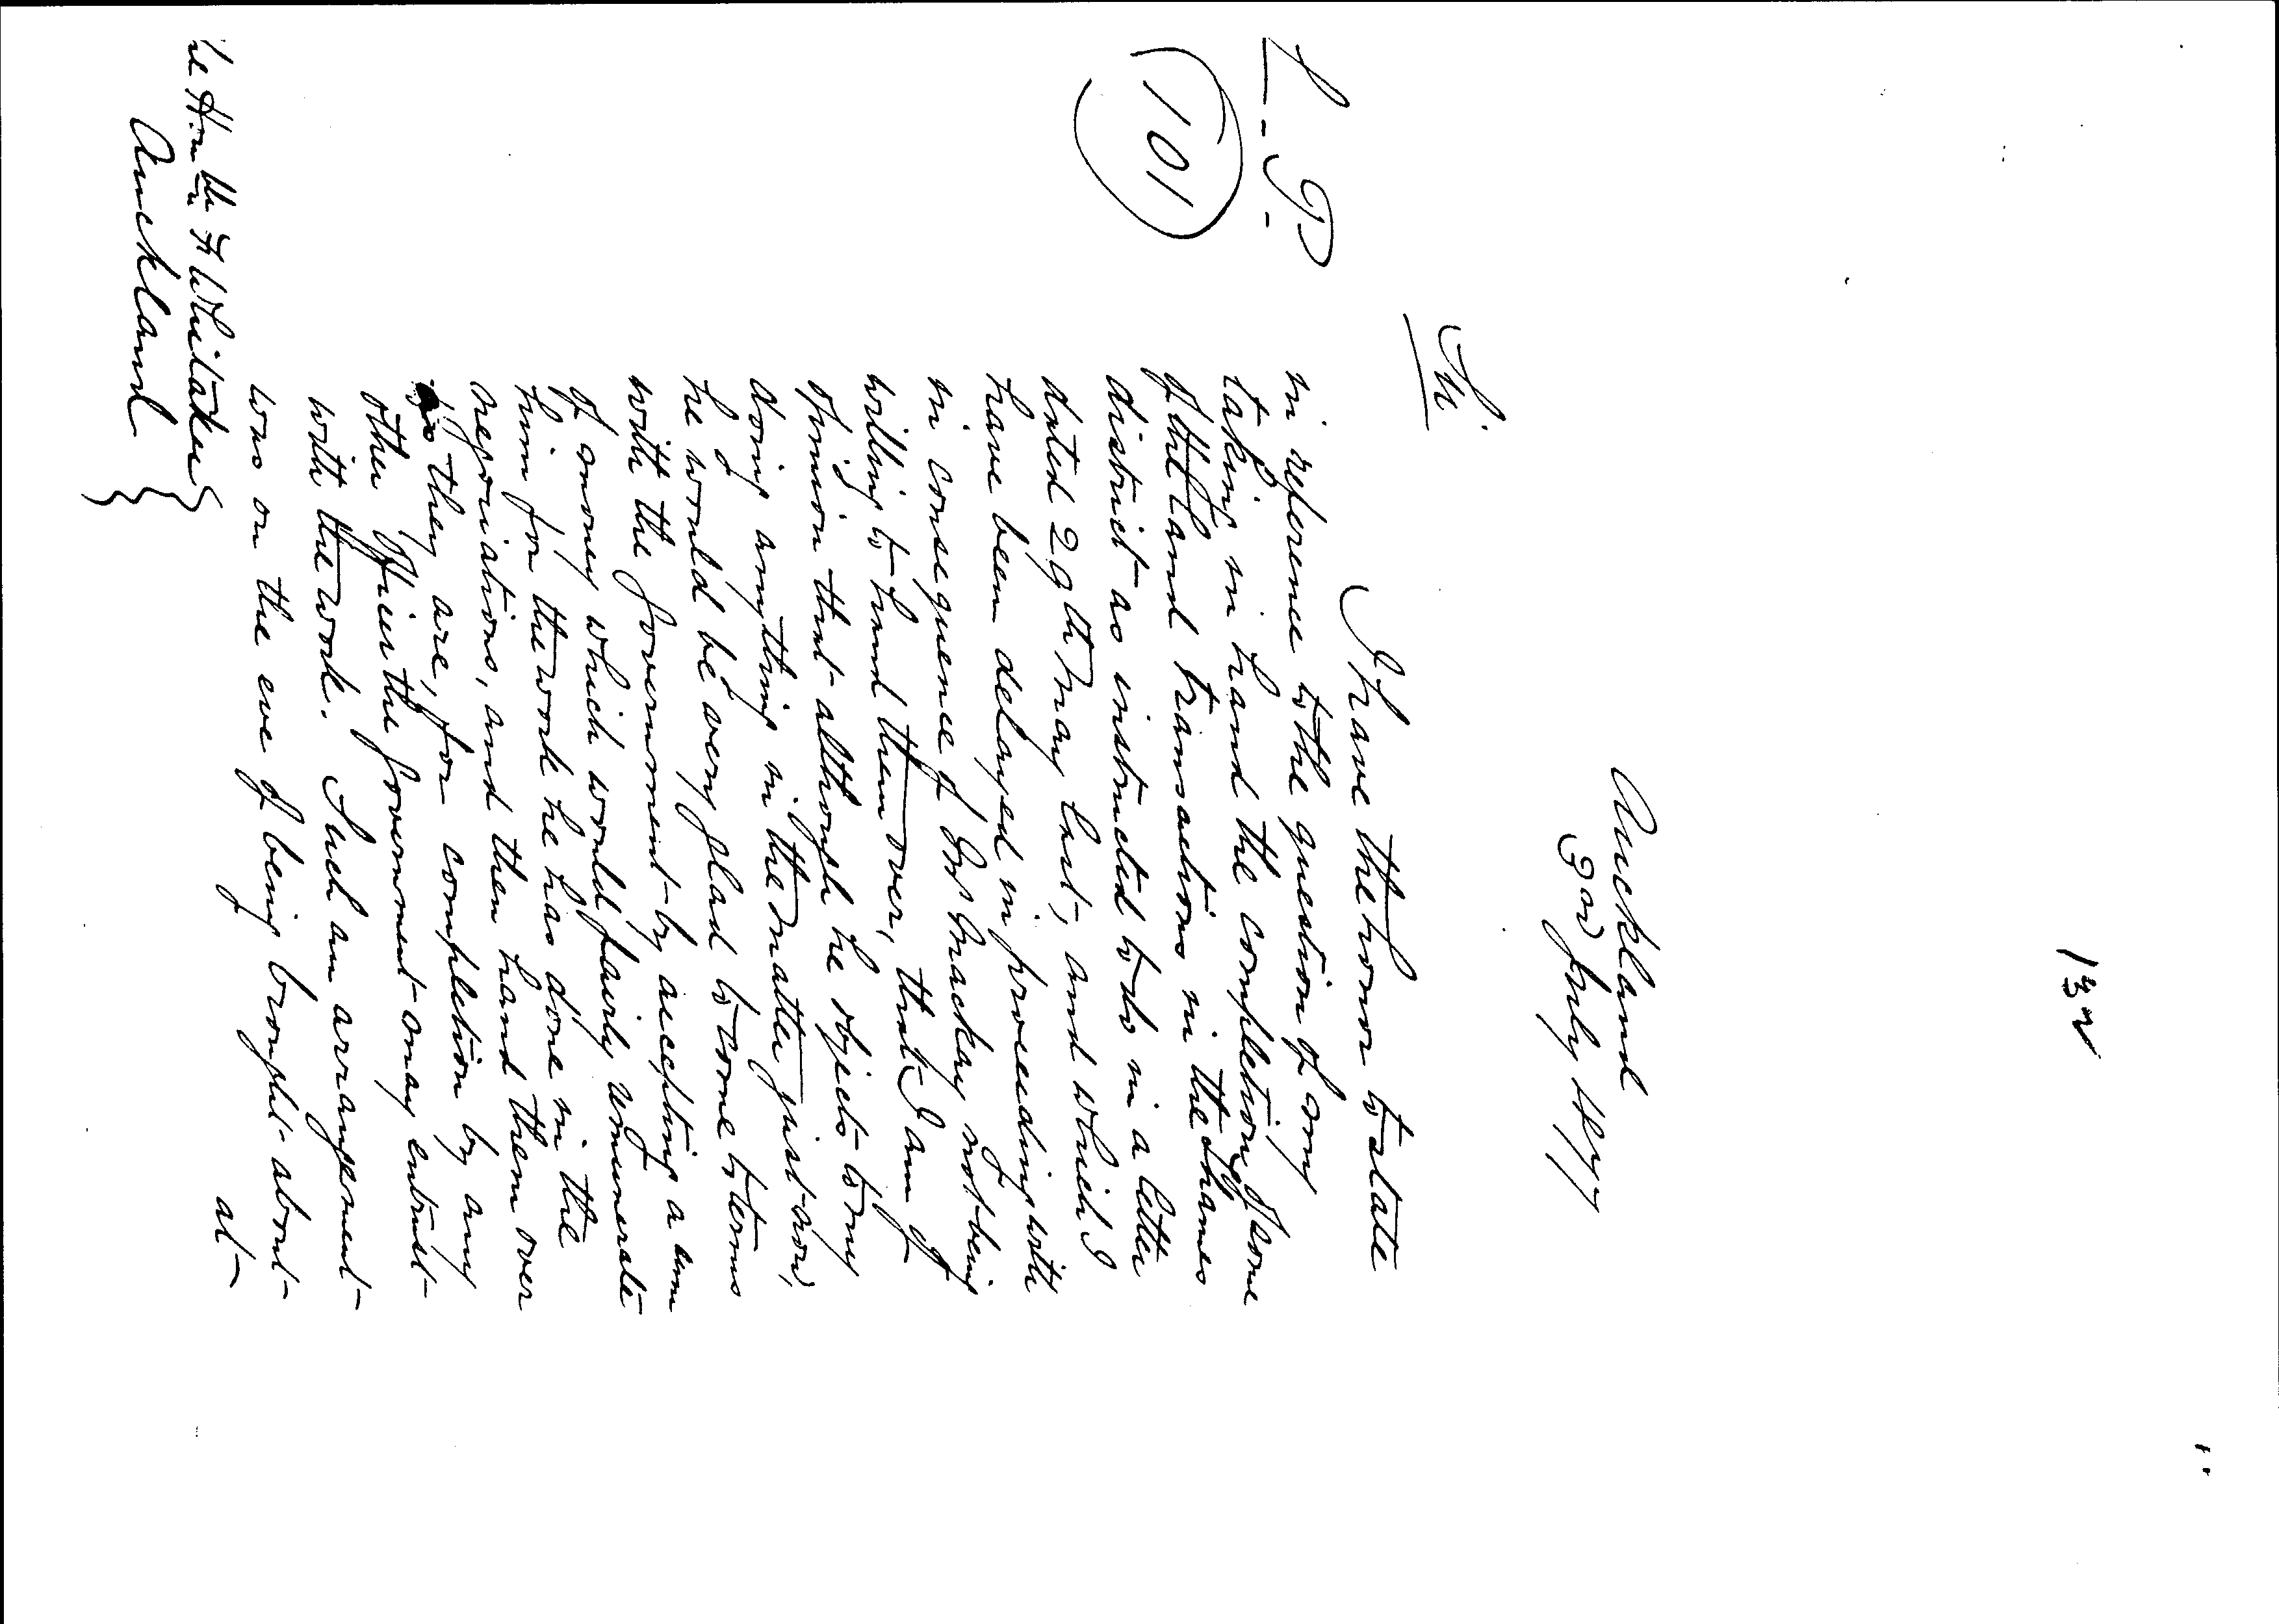 132
Auckland
3rd July 1877
L.P.
101
Sir
I have the honor to state
in reference to the question of my
taking in hand the completion of some
of the Land transactions in the Thames
district as instructed to do in a letter
dated 29th May last, and which I
have been delayed in proceeding with
in consequence of Mr Mackay not being
willing to hand them over, that I am of
opinion that although he objects to my
doing anything in the matter just now,
he would be very glad to come to terms
with the Government by accepting a sum
of money which would fairly remunerate
him for the work he has done in the
negociations, and then hand them over
as they are, for completion by any
other Officer the Government may entrust
with the work. Such an arrangement
was on the eve of being brought about
at
The Honble F Whitaker
Auckland